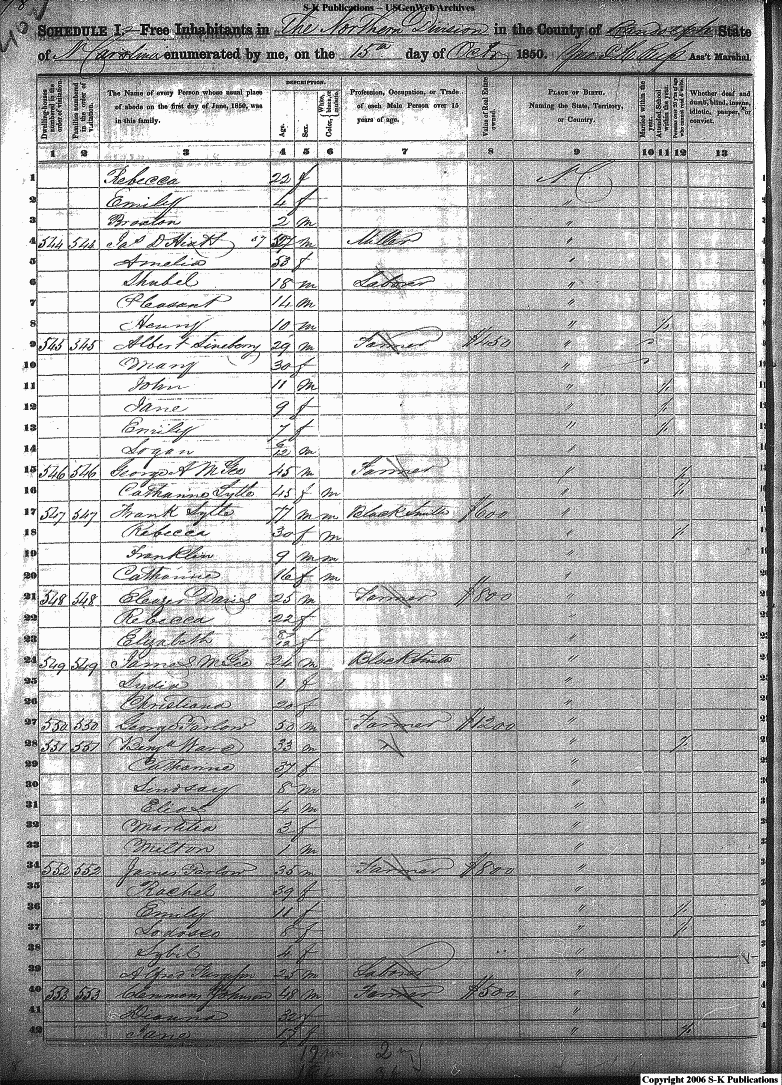 S-K Publications – USGenWeb Archives
SCHEDULE I.—Free Inhabitants in The Northern Division in the County of Randolph State
of N Carolina enumerated by me, on the 15th day of Octo 1850. Ass't Marshal.
Dwelling-houses numbered in the order of visitation.
Families numbered in the order of visitation.
The Name of every Person whose usual place of abode on the first day of June, 1850, was in this family.
DESCRIPTION.
Age.
Sex.
Color, White, black, or mulatto.
Profession, Occupation, or Trade of each Male Person over 15 years of age.
Value of Real Estate owned.
PLACE OF BIRTH. Naming the State, Territory, or Country.
Married within the year.
Attended School within the year.
Persons over 20 y'rs of age who cannot read & write.
Whether deaf and dumb, blind, insane, idiotic, pauper, or convict.
1 2 3 4 5 6 7 8 9 10 11 12 13
1 Rebecca 22 f N C
2 Emily 4 f "
3 Braxton 2 m "
4 544 544 Jas D Hiatt 57 m Miller "
5 Amelia 53 f "
6 Shubel 18 m Laborer "
7 Pleasant 14 m "
8 Henry 10 m " /
9 545 545 Albert Lineberry 29 m Farmer $450 "
10 Mary 30 f "
11 John 11 m " /
12 Jane 9 f " /
13 Emily 7 f " /
14 Logan 6/12 m "
15 546 546 George A McGee 45 m Farmer " /
16 Catharine Lytle 45 f m " /
17 547 547 Frank Lytle 77 m m Blacksmith $600 "
18 Rebecca 30 f m " /
19 Franklin 9 m m "
20 Catharine 16 f m "
21 548 548 Eleazer Davis 25 m Farmer $800 "
22 Rebecca 22 f "
23 Elizabeth 8/12 f "
24 549 549 James McGee 24 m Blacksmith "
25 Lydia 1 f "
26 Christiana 20 f "
27 550 550 George Farlow 50 m Farmer $1200 "
28 551 551 Ward 33 m " /
29 Catharine 37 f "
30 Lindsay 8 m "
31 Elias 4 m "
32 Martitia 3 f "
33 Milton 1 m "
34 552 552 James Farlow 35 m Farmer $800 "
35 Rachel 39 f "
36 Emily 11 f " /
37 Lodosco 8 f " /
38 Sybil 4 f "
39 25 m Laborer "
40 553 553 Clemmons Johnson 48 m Farmer $500 "
41 Dianna 30 f "
42 Jane 17 f " /
Copyright 2006 S-K Publications